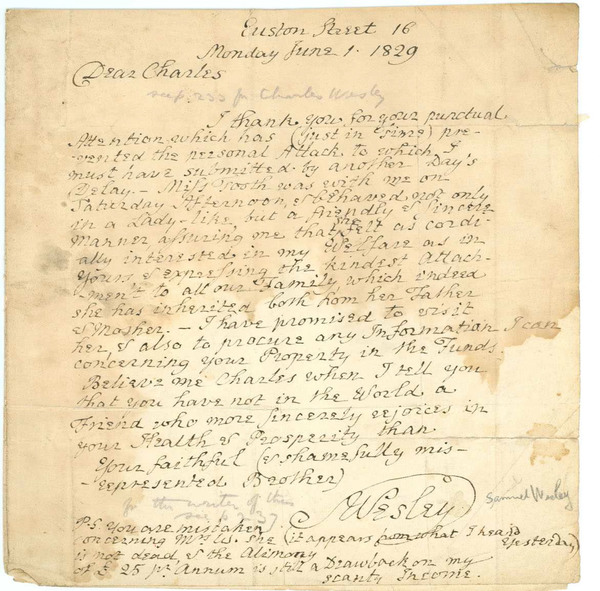 Euston Street 16
Monday June 1. 1829
Dear Charles
see p. 233 for Charles Wesley
I thank you for your punctual
Attention, which has (just in Time) pre-
vented the personal Attack to which I
must have submitted by another Day's
Delay. – Miss Tooth was with me on
Saturday Afternoon, & behaved not only
in a Lady-like, but a friendly & sincere
Manner assuring me that she felt as cordi-
ally interested in my Welfare as in
yours & expressing the kindest Attach-
ment to all our Family, which indeed
she has inherited both from her Father
& Mother. – I have promised to visit
her, & also to procure any Information I can
concerning your Property in the Funds.
Believe me Charles when I tell you
that you have not in the World a
Friend who more sincerely rejoices in
your Health & Prosperity than
Your faithful (& shamefully mis-
-represented Brother)
for the writer of this
see p.
SWesley
Samuel Wesley
PS You are mistaken
concerning Mrs. W. she (it appears from what I heard
yesterday)
is not dead, & the Alimony
of £ 25 pr. Annum is still a Drawback on my
scanty Income.